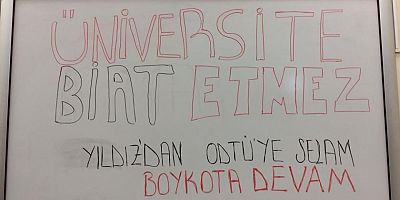 ÜNİVERSİTE
BİAT ETMEZ
YILDIZ'DAN ODTÜ'YE SELAM
BOYKOTA DEVAM